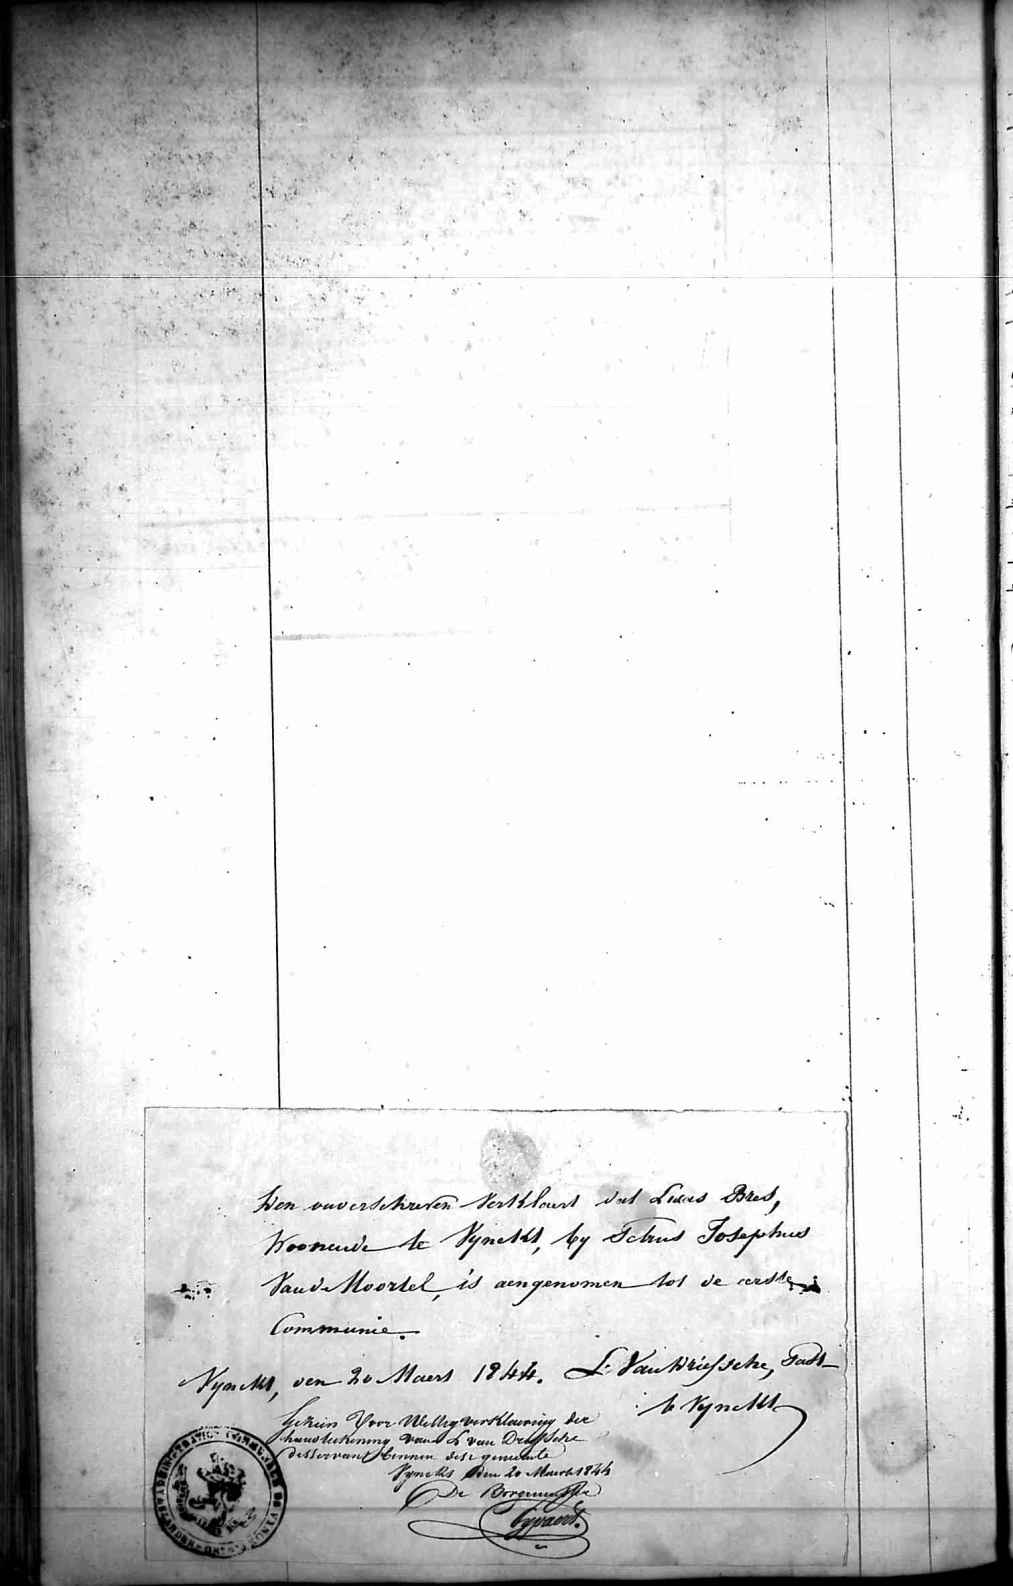 Den onderschreven Verklaert dat Lucas Bres,
Woonende te Vynckt, by Petrus Josephus
Vande Moortel, is aengenomen tot de eerste
Communie.
Vynckt, den 20 Maert 1844. L. Vandriessche, Past.
te Vynckt
Gezien Voor Wettig verklaering der
handteekening van L van Driessche
desservant binnen dese gemeente
Vynckt den 20 Maert 1844
De Borgemeester
ADMINISTRATION COMMUNALE DE VYNCKT